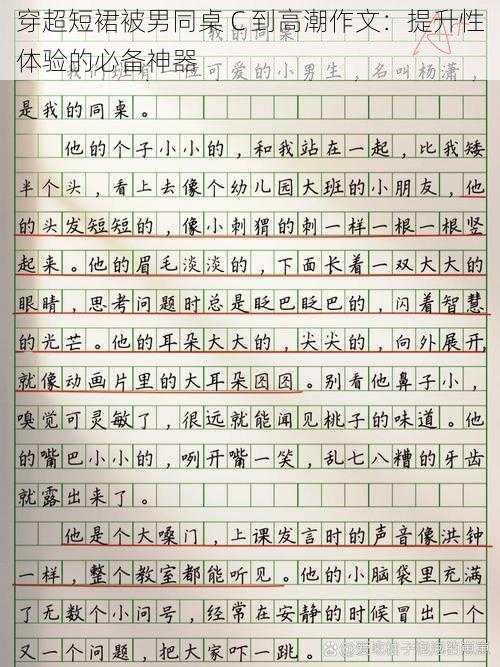 我的同桌
是我的同桌。
他的个子小小的，和我站在一起，比我矮
半个头，看上去像个幼儿园大班的小朋友，他
的头发短短的，像小刺猬的刺一样一根一根竖
起来。他的眉毛淡淡的，下面长着一双大大的
眼睛，思考问题时总是眨巴眨巴的，闪着智慧
的光芒。他的耳朵大大的，尖尖的，向外展开，
就像动画片里的大耳朵图图。别看他鼻子小，
嗅觉可灵敏了，很远就能闻见桃子的味道。他
的嘴巴小小的，咧开嘴一笑，乱七八糟的牙齿
就露出来了。
他是个大嗓门，上课发言时的声音像洪钟
一样，整个教室都能听见。他的小脑袋里充满
了无数个小问号，经常在安静的时候冒出一个
又一个问题，把大家吓一跳。